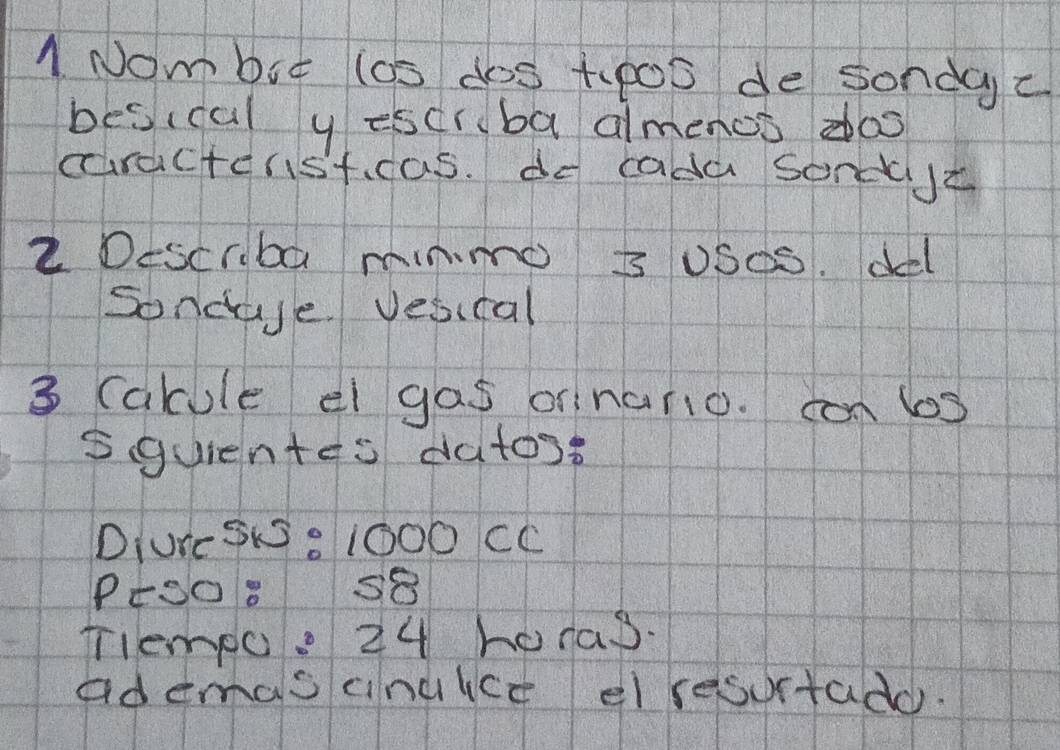 1 Nombre los dos tipos de sondaje
besical y escriba almenos dos
caracteristicas. de cada sondaje
2 Describa minimo 3 usos. del
Sondaje vesical
3 Calcule el gas orinario. con los
siguientes datos:
Diuresis: 1000 cc
Peso: 58
Tiempo: 24 horas.
ademas analice el resurtado.